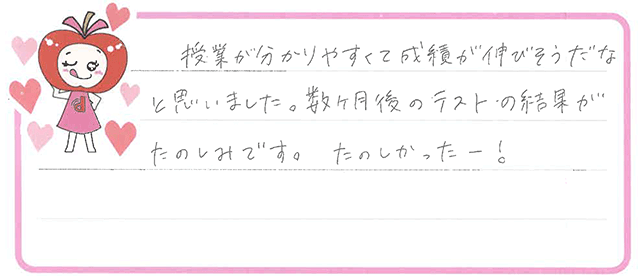 授業が分かりやすくて成績が伸びそうだな
と思いました。数ヶ月後のテストの結果が
たのしみです。 たのしかったー!